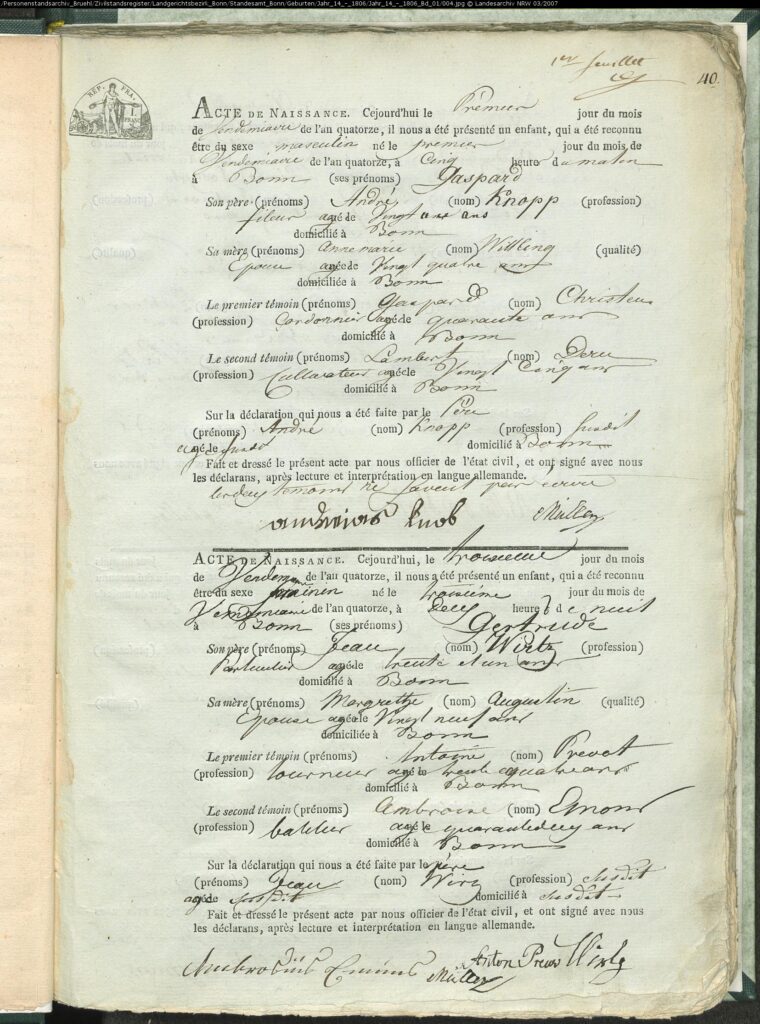 /Personenstandsarchiv_Bruehl/Zivilstandsregister/Landgerichtsbezirk_Bonn/Standesamt_Bonn/Geburten/Jahr_14_-_1806/Jahr_14_-_1806_Bd_01/004.jpg © Landesarchiv NRW 03/2007
1er feuillet
40.
REP. FRA.
ACTE DE NAISSANCE. Cejourd'hui le Premier jour du mois
de Vendemiaire de l'an quatorze, il nous a été présenté un enfant, qui a été reconnu
être du sexe masculin né le premier jour du mois de
Vendemiaire de l'an quatorze, à Cinq heure du matin
à Bonn (ses prénoms) Gaspard
Son père (prénoms) André (nom) Knopp (profession)
fileur agé de Vingt ans
domicilié à Bonn
Sa mère (prénoms) Anne marie (nom) Willing (qualité)
Epouse agée de Vingt quatre ans
domiciliée à Bonn
Le premier témoin (prénoms) Gaspard (nom) Christen
(profession) Cordonnier agé de quarante ans
domicilié à Bonn
Le second témoin (prénoms) Lambert (nom) Deru
(profession) Cultivateur agé de Vingt Cinq ans
domicilié à Bonn
Sur la déclaration qui nous a été faite par le Père
(prénoms) André (nom) Knopp (profession) susdit
agé de susdit domicilié à Bonn
Fait et dressé le présent acte par nous officier de l'état civil, et ont signé avec nous
les déclarans, après lecture et interprétation en langue allemande.
les deux temoins ne savent pas ecrire
andreias knob Müller
ACTE DE NAISSANCE. Cejourd'hui, le troisieme jour du mois
de Vendem de l'an quatorze, il nous a été présenté un enfant, qui a été reconnu
être du sexe feminin né le troisième jour du mois de
Vendemiaire de l'an quatorze, à deux heure de nuit
à Bonn (ses prénoms) Gertrude
Son père (prénoms) Jean (nom) Wirtz (profession)
Particulier agé de trente et un ans
domicilié à Bonn
Sa mère (prénoms) Margrethe (nom) Augustin (qualité)
Epouse agée de Vingt neuf ans
domiciliée à Bonn
Le premier témoin (prénoms) Antoine (nom) Prevot
(profession) tourneur agé de trente quatre ans
domicilié à Bonn
Le second témoin (prénoms) Ambroise (nom)
(profession) agé de quarante deux ans
domicilié à Bonn
Sur la déclaration qui nous a été faite par le père
(prénoms) Jean (nom) Wirz (profession) susdit
agé de susdit domicilié à susdit
Fait et dressé le présent acte par nous officier de l'état civil, et ont signé avec nous
les déclarans, après lecture et interprétation en langue allemande.
Ambrosius Müller Anton Wirtz